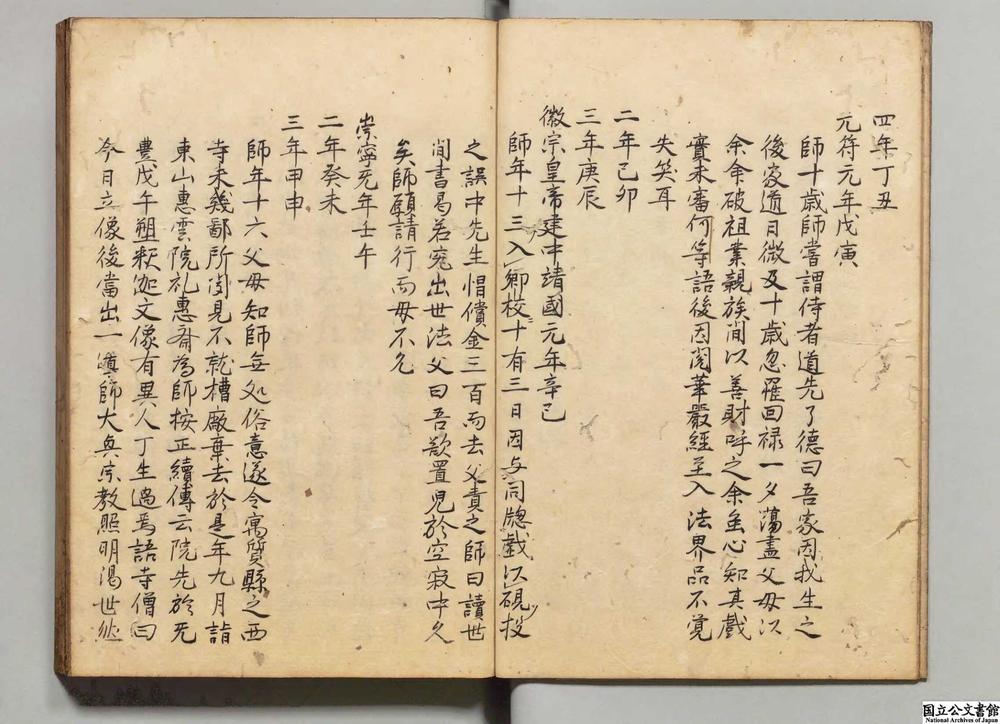 四年丁丑
元符元年戊寅
師十歲師嘗謂侍者道先了德曰吾家因我生之
後家道日微及十歲忽罹回禄一夕蕩盡父母以
余命破祖業親族間以善財呼之余無心知其戲
實未審何等語後因閱華嚴經至入法界品不覚
失笑耳
二年己卯
三年庚辰
徽宗皇帝建中靖國元年辛巳
師年十三入鄉校十有三日因与同牕戲以硯投
之誤中先生帽償金三百而去父責之師曰讀世
間書曷若究出世法父曰吾欲置児於空寂中久
矣師願請行而母不允
崇寧元年壬午
二年癸未
三年甲申
師年十六父母知師無処俗意遂令寓質縣之西
寺未幾鄙所聞見不就槽廠棄去於是年九月詣
東山惠雲院礼惠齊為師按正續傳云院先於元
豊戊午塑釈迦文像有異人丁生過焉語寺僧曰
今日立像後當出一導師大興宗教照明濁世然
国立公文書館
National Archives of Japan